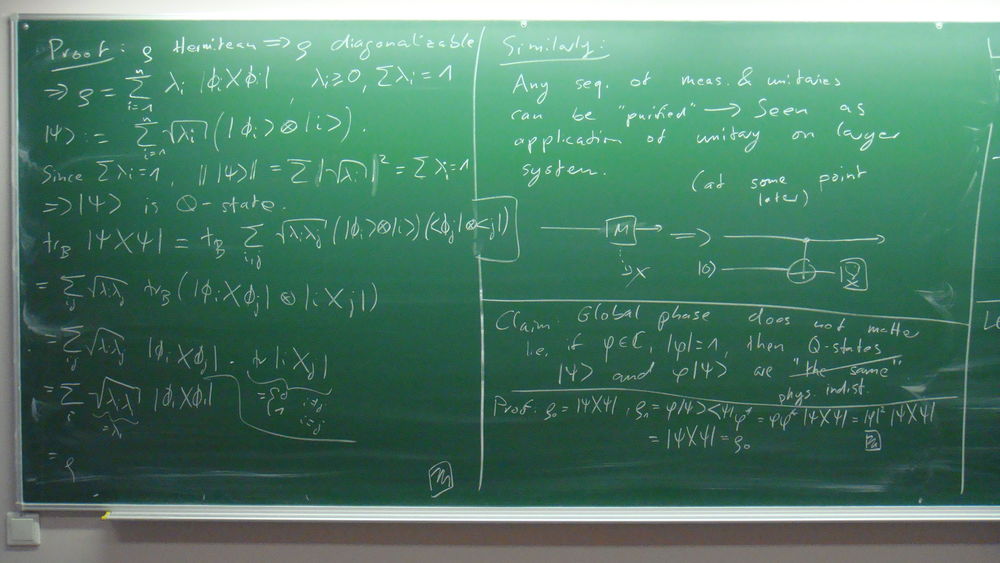 Proof: ρ Hermitean ⟹ ρ diagonalizable
⟹ ρ = ∑_{i=1}^{n} λ_i |ϕ_i⟩⟨ϕ_i|, λ_i ≥ 0, ∑λ_i = 1
|Ψ⟩ := ∑_{i=1}^{n} √λ_i (|ϕ_i⟩ ⊗ |i⟩).
Since ∑λ_i = 1, || |Ψ⟩ || = ∑ |√λ_i|² = ∑λ_i = 1
⟹ |Ψ⟩ is Q-state.
tr_B |Ψ⟩⟨Ψ| = tr_B ∑_{i,j} √λ_iλ_j (|ϕ_i⟩⊗|i⟩)(⟨ϕ_j|⊗⟨j|)
= ∑_{ij} √λ_iλ_j tr_B (|ϕ_i⟩⟨ϕ_j| ⊗ |i⟩⟨j|)
= ∑_{ij} √λ_iλ_j |ϕ_i⟩⟨ϕ_j| · tr |i⟩⟨j|
= { 0 i≠j
1 i=j
= ∑_i √λ_iλ_i |ϕ_i⟩⟨ϕ_i|
= λ
= ρ
Similarly:
Any seq. of meas. & unitaries
can be "purified" → Seen as
application of unitary on larger
system.
(at some point
later)
M ⟹
x |0⟩
x
Claim: Global phase does not matter
i.e., if φ∈ℂ, |φ|=1, then Q-states
|Ψ⟩ and φ|Ψ⟩ are "the same"
phys. indist.
Proof: ρ_0 = |Ψ⟩⟨Ψ|, ρ_1 = φ|Ψ⟩⟨Ψ|φ* = φφ* |Ψ⟩⟨Ψ| = |φ|² |Ψ⟩⟨Ψ|
= |Ψ⟩⟨Ψ| = ρ_0